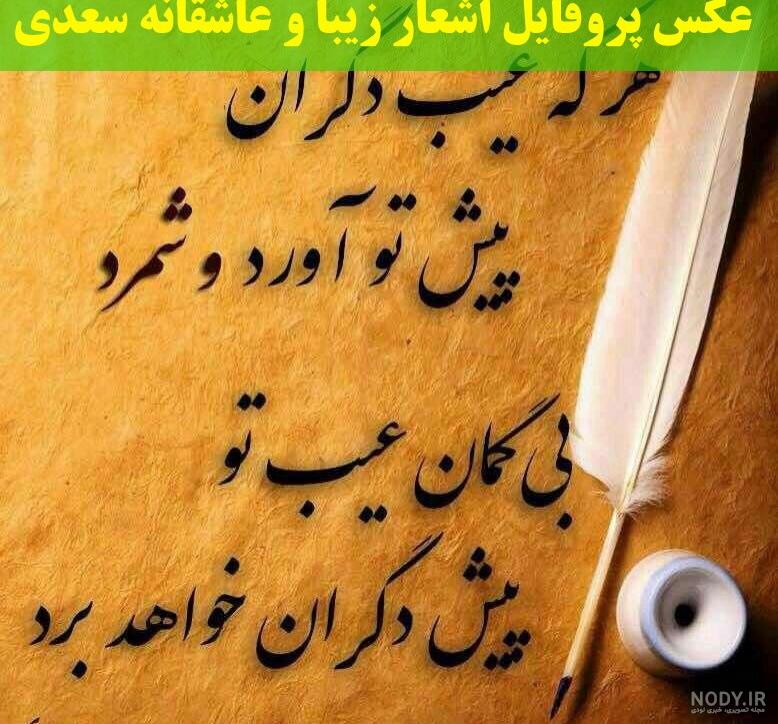 عکس پروفایل اشعار زیبا و عاشقانه سعدی
هر که عیب دگران
پیش تو آورد و شمرد
بی گمان عیب تو
پیش دگران خواهد برد
NODY.IR
مجله تصویری، خبری نودی